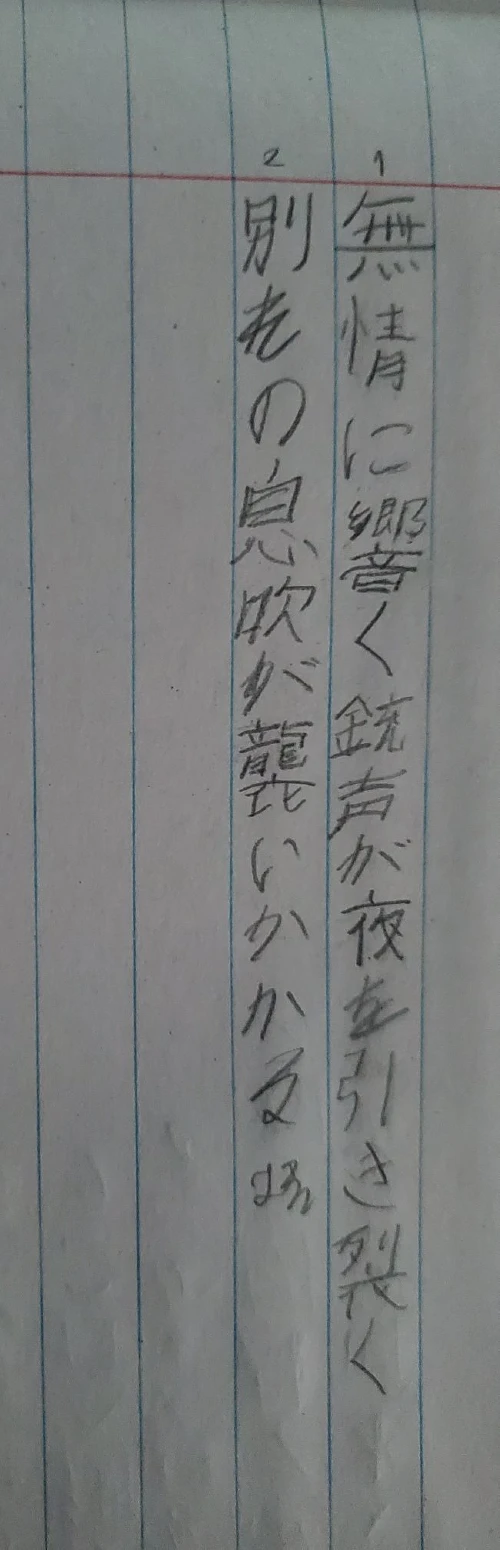 1 無情に響く銃声が夜を引き裂く
2 別れの息吹が襲いかかる